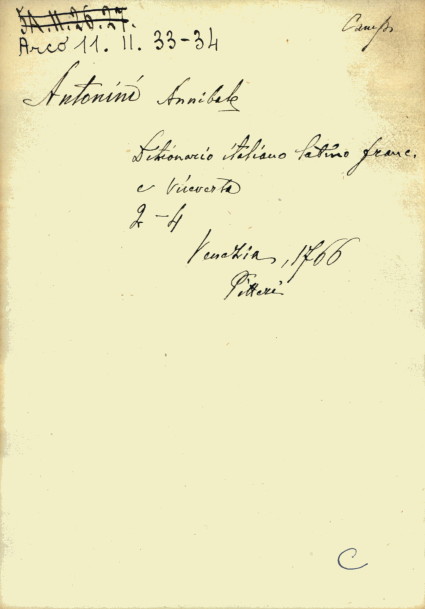 3A.11.26.27.
Camp.
Arco 11. II. 33-34
Antonini Annibale
Dizionario italiano latino franc.
e viceversa
2-4
Venezia, 1766
Pitteri
C